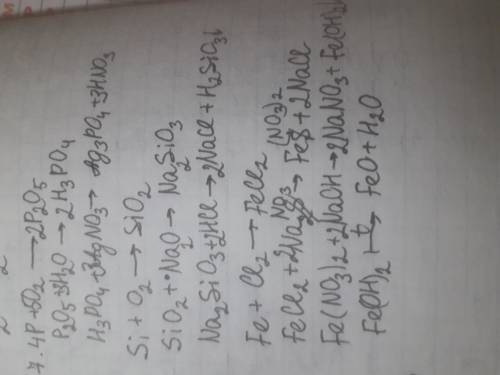 7. 4P + 5O₂ → 2P₂O₅
P₂O₅ + 3H₂O → 2H₃PO₄
H₃PO₄ + 3AgNO₃ → Ag₃PO₄ + 3HNO₃
Si + O₂ → SiO₂
SiO₂ + Na₂O → Na₂SiO₃
Na₂SiO₃ + 2HCl → 2NaCl + H₂SiO₃↓
Fe + Cl₂ → FeCl₂
FeCl₂ + 2NaNO₃ → Fe(NO₃)₂ + 2NaCl
Fe(NO₃)₂ + 2NaOH → 2NaNO₃ + Fe(OH)₂
Fe(OH)₂ →t FeO + H₂O